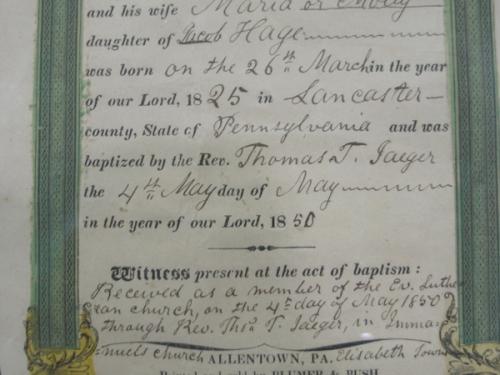 and his wife Maria or Molly
daughter of Jacob Hage
was born on the 26th March in the year
of our Lord, 1825 in Lancaster
county, State of Pennsylvania and was
baptized by the Rev. Thomas T. Jaeger
the 4th May day of May
in the year of our Lord, 1850
Witness present at the act of baptism:
Received as a member of the Ev. Luthe
ran church, on the 4th day of May 1850
through Rev. Thos T. Jaeger, in Imma
nuels church ALLENTOWN, PA. Elisabeth Town
Printed and sold by BLUMER & BUSH